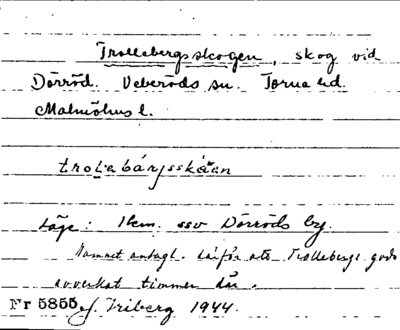 Trollebergsskogen, skog vid
Dörröd. Veberöds sn. Torna hd.
Malmöhus l.
Läge: 1 km. ssv Dörröds by.
Namnet antagl. därför att Trollebergs gods
avverkat timmer där.
Nr 5855. J. Friberg 1944.